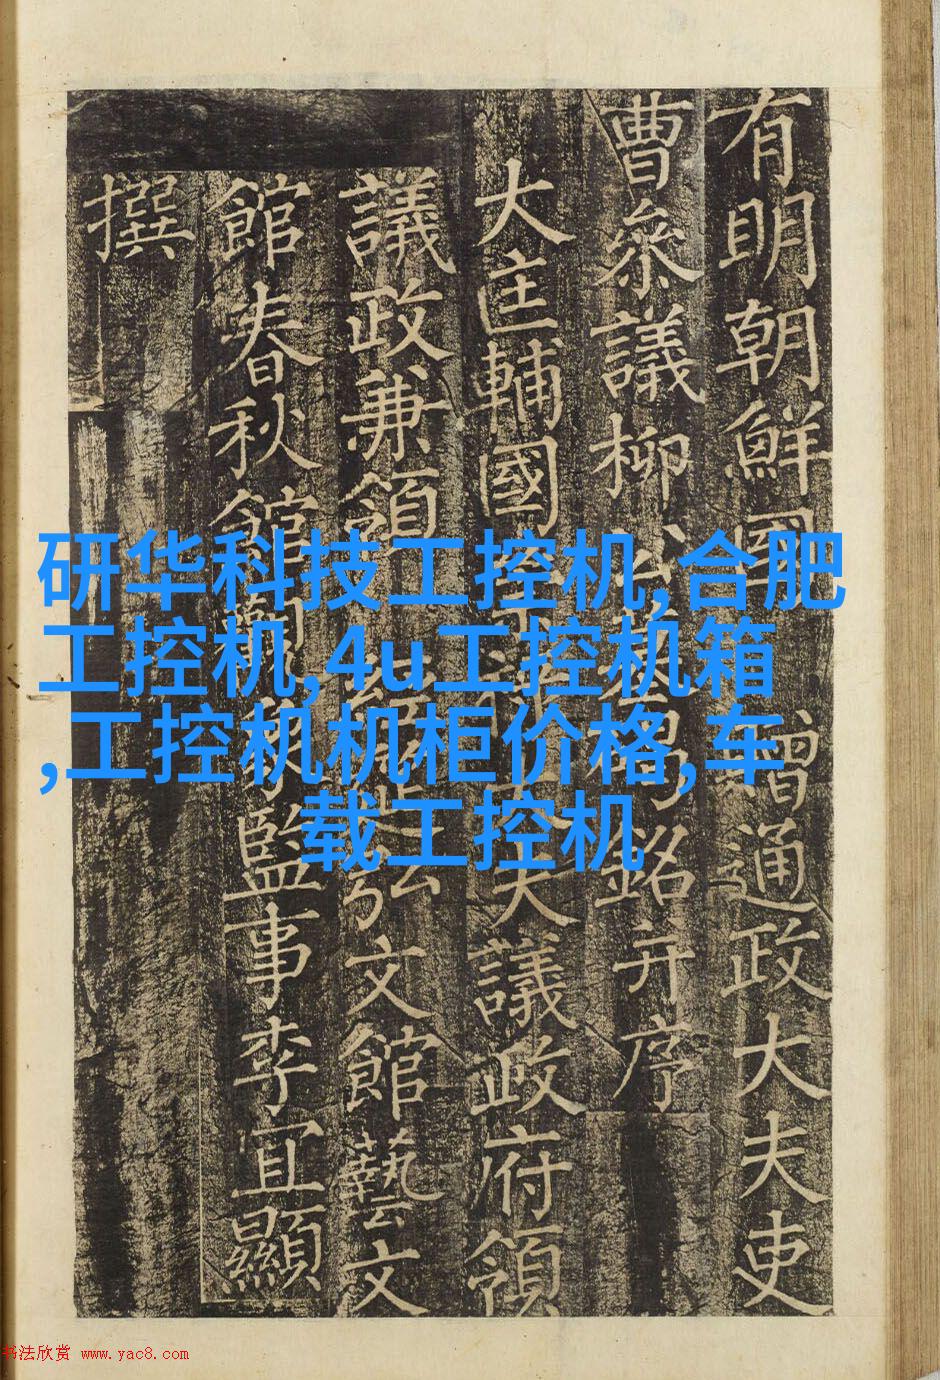 有明朝鮮國 贈通政大夫吏
曹叅議柳公墓碣銘并序
大匡輔國崇祿大夫議政府領
議政兼領 經筵弘文館藝文
館春秋館觀象監事李宜顯
撰
研华科技工控机,合肥
工控机,4u工控机箱
,工控机机柜价格,车
载工控机
书法欣赏 www.yac8.com